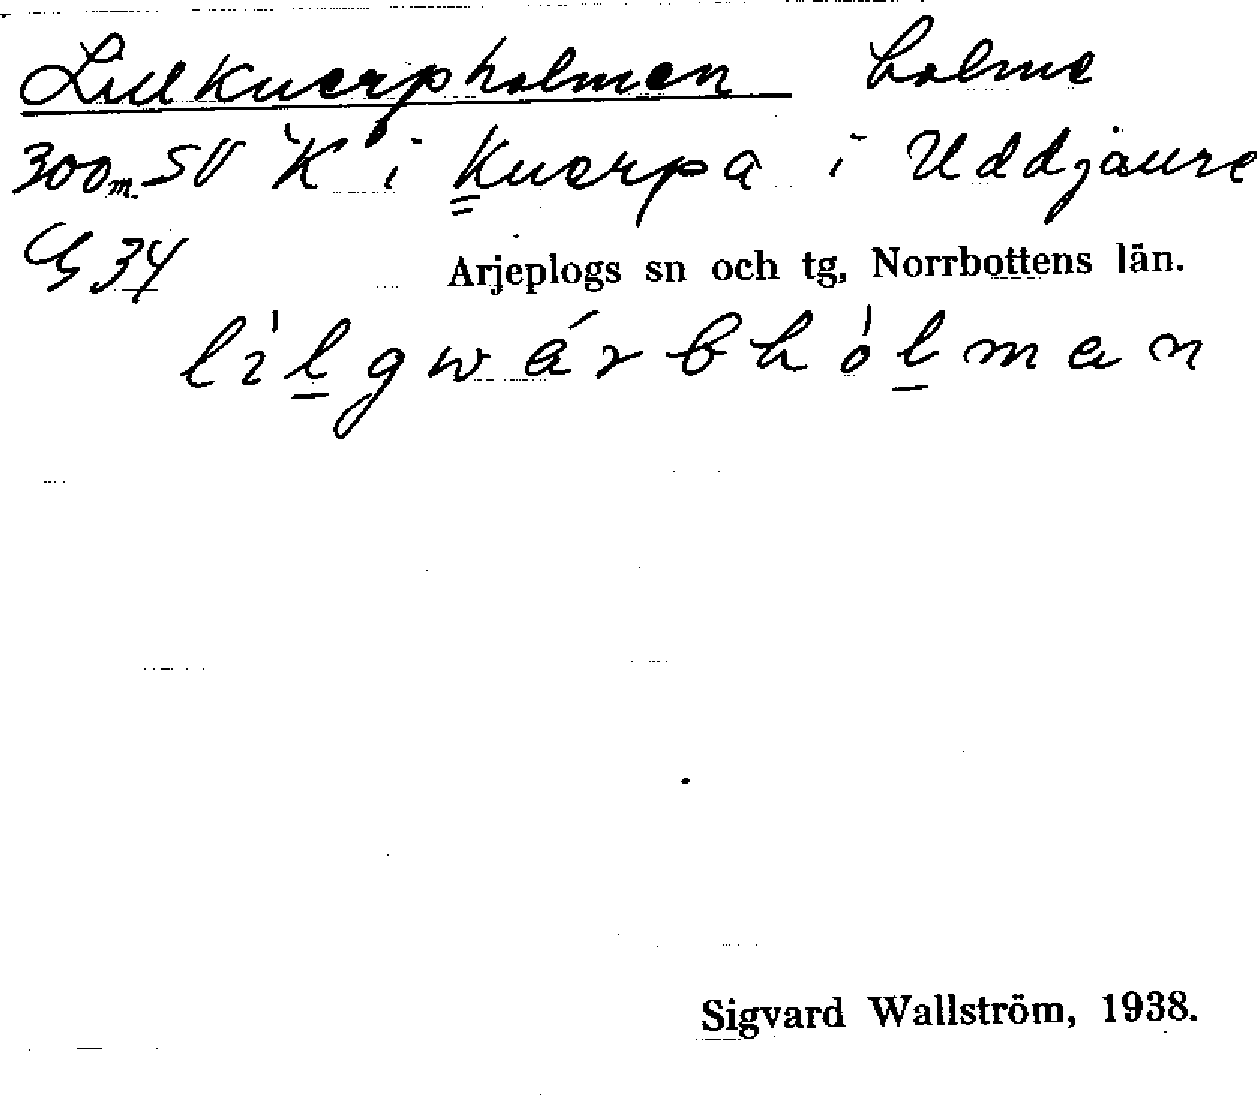 Lillkuerpholmen holme
300 m. SV K i Kuerpa i Uddjaure
G 34 Arjeplogs sn och tg, Norrbottens län.
lìlgwárbhòlmen
Sigvard Wallström, 1938.